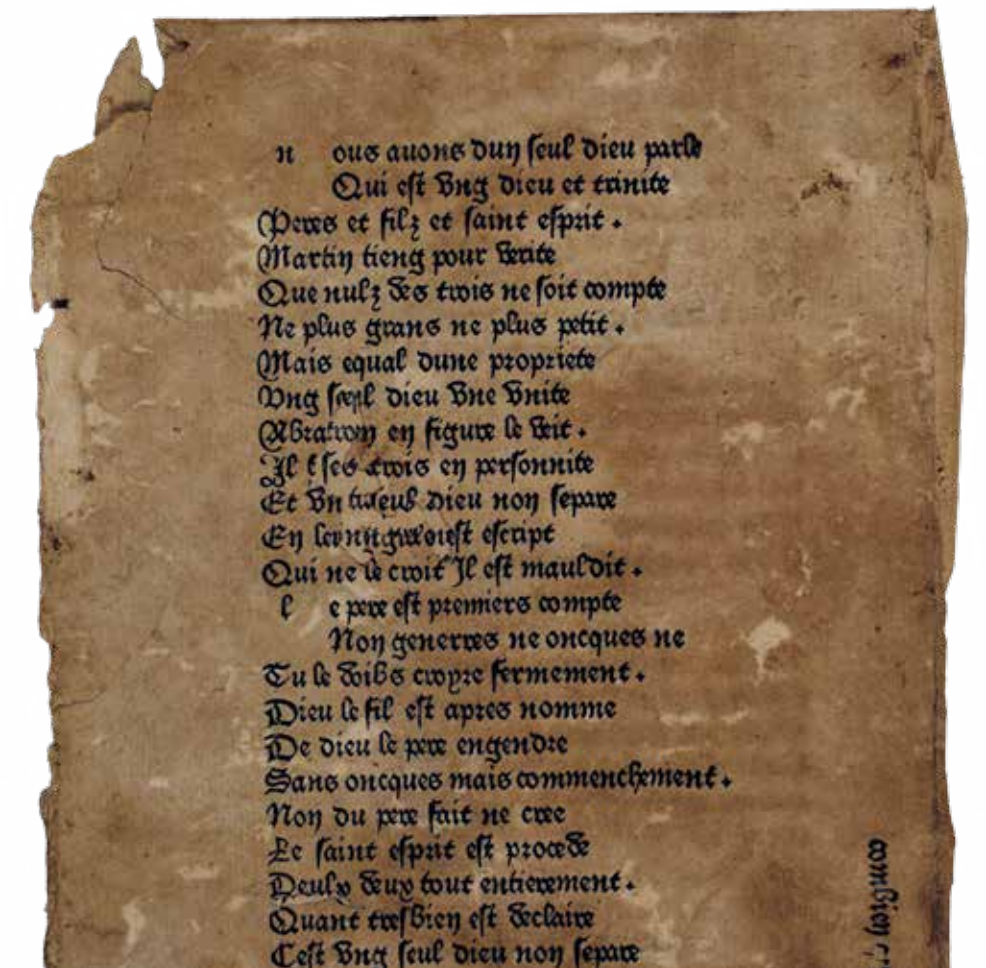 n ous auons duy seul dieu parle
Qui est vng dieu et trinite
Peres et filz et saint esprit .
Martin tieng pour verite
Que nulz des trois ne soit compte
Ne plus grans ne plus petit .
Mais equal dune propriete
Vng seul dieu vne vnite
Abraham en figure le veit .
Il ses trois en personnite
Et vn seul dieu non separe
En est escript
Qui ne le croit Il est mauldit .
l e pere est premiers compte
Non generres ne oncques ne
Tu le doibs croyre fermement .
Dieu le fil est apres nomme
De dieu le pere engendre
Sans oncques mais commenchement .
Non du pere fait ne cree
Le saint esprit est procede
Deulx deux tout entierement .
Quant tresbien est declaire
Cest vng seul dieu non separe
combien